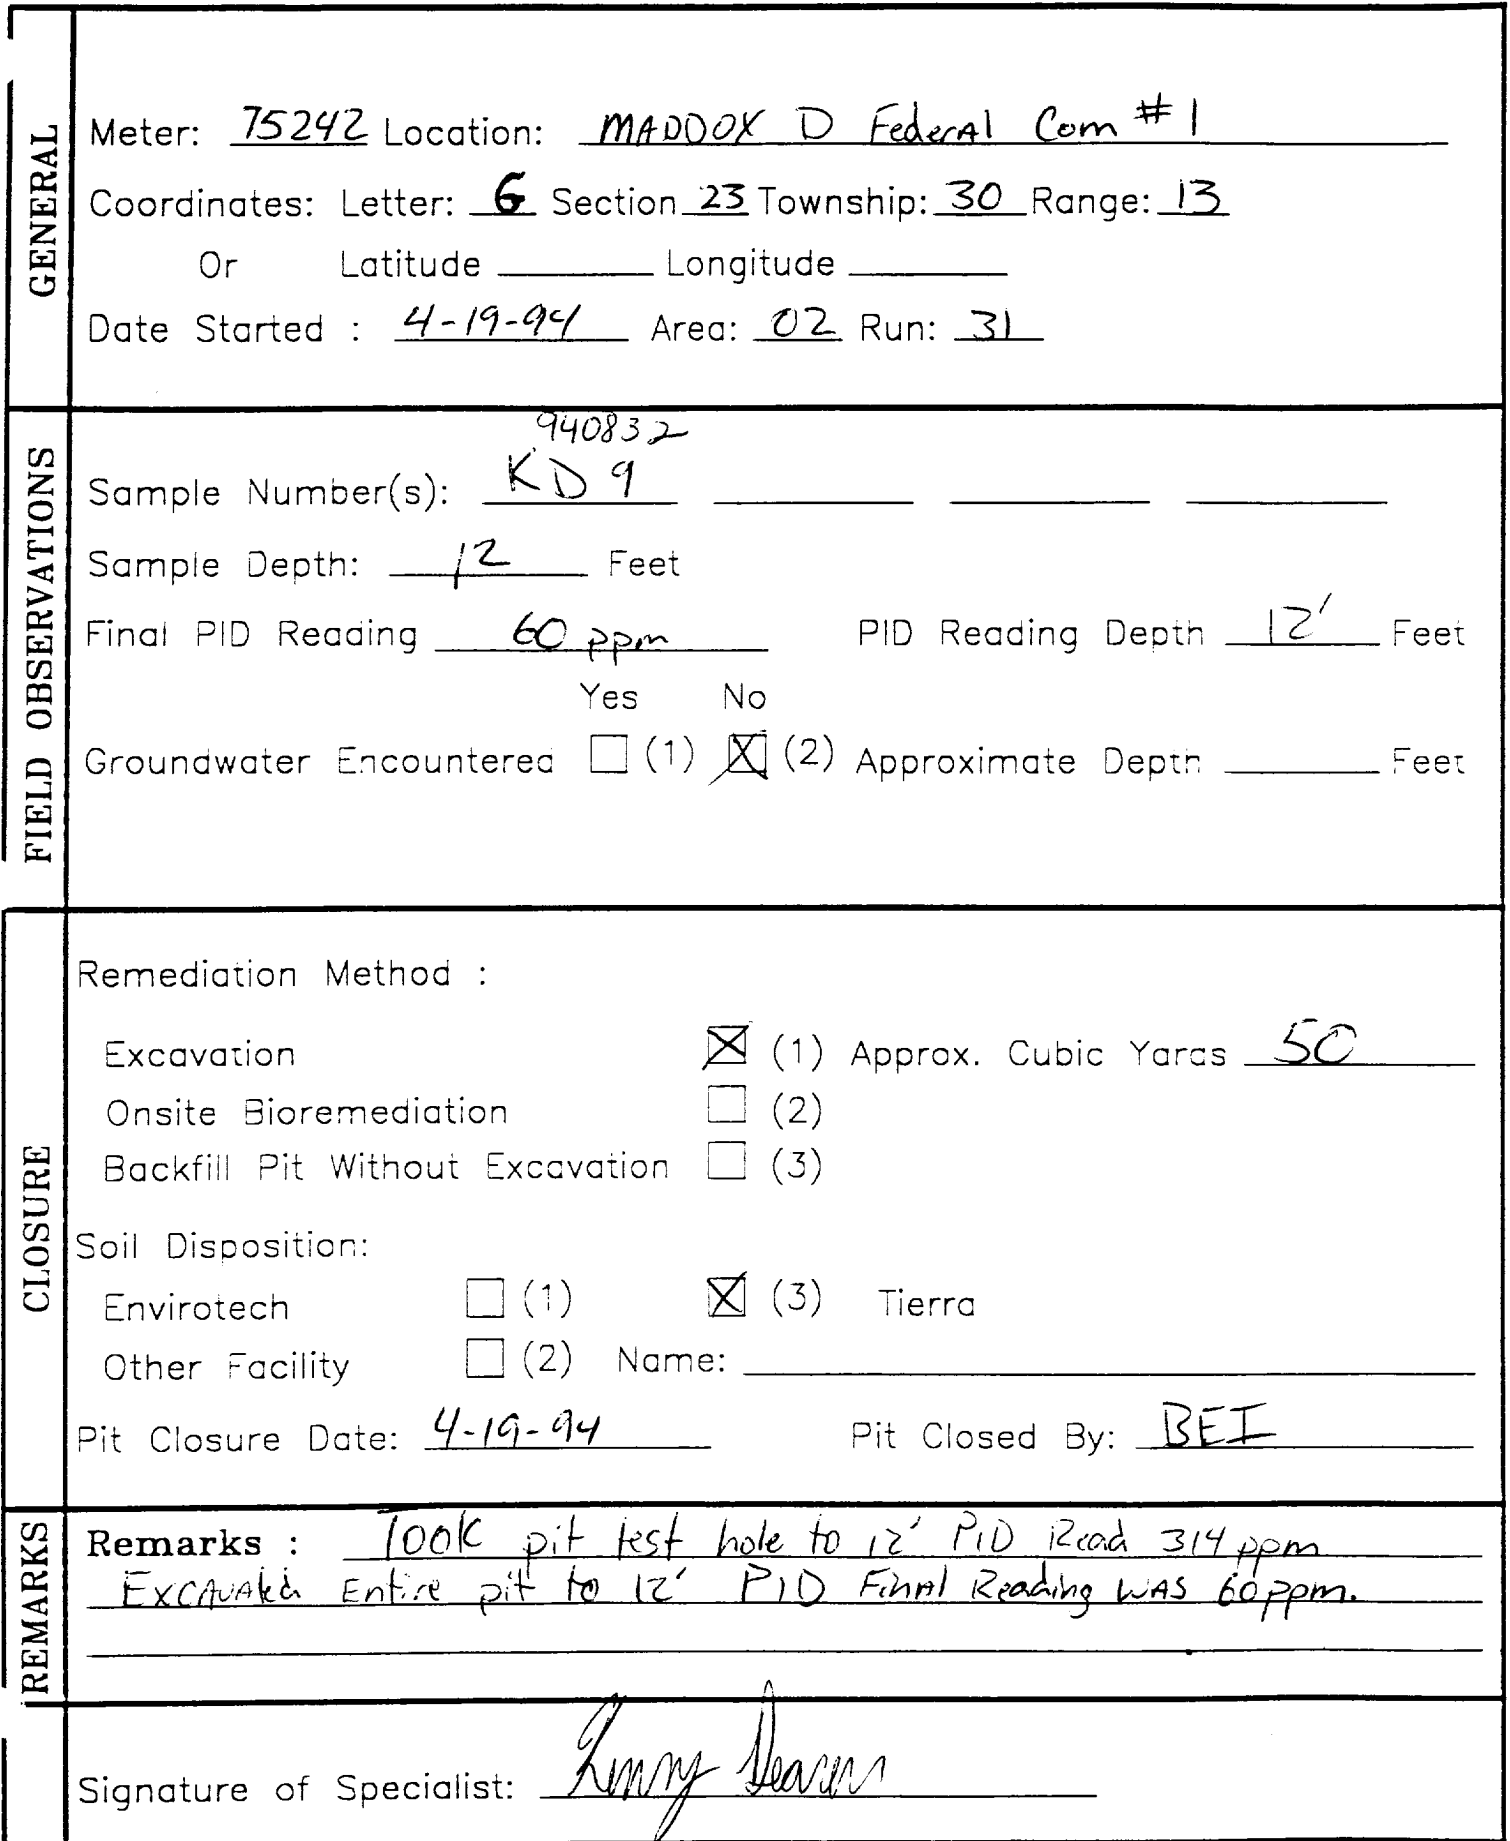 GENERAL
Meter: 75242 Location: MADDOX D Federal Com #1
Coordinates: Letter: G Section 23 Township: 30 Range: 13
Or Latitude ______ Longitude ______
Date Started : 4-19-94 Area: 02 Run: 31
FIELD OBSERVATIONS
940832
Sample Number(s): KD9 ______ ______ ______
Sample Depth: 12 Feet
Final PID Reading 60 ppm PID Reading Depth 12' Feet
Yes No
Groundwater Encountered ☐ (1) ☒ (2) Approximate Depth ______ Feet
CLOSURE
Remediation Method :
Excavation ☒ (1) Approx. Cubic Yards 50
Onsite Bioremediation ☐ (2)
Backfill Pit Without Excavation ☐ (3)
Soil Disposition:
Envirotech ☐ (1) ☒ (3) Tierra
Other Facility ☐ (2) Name: ______
Pit Closure Date: 4-19-94 Pit Closed By: BEI
REMARKS
Remarks : Took pit test hole to 12' PID Read 314 ppm
Excavated Entire pit to 12' PID Final Reading was 60ppm.
Signature of Specialist: Kenny